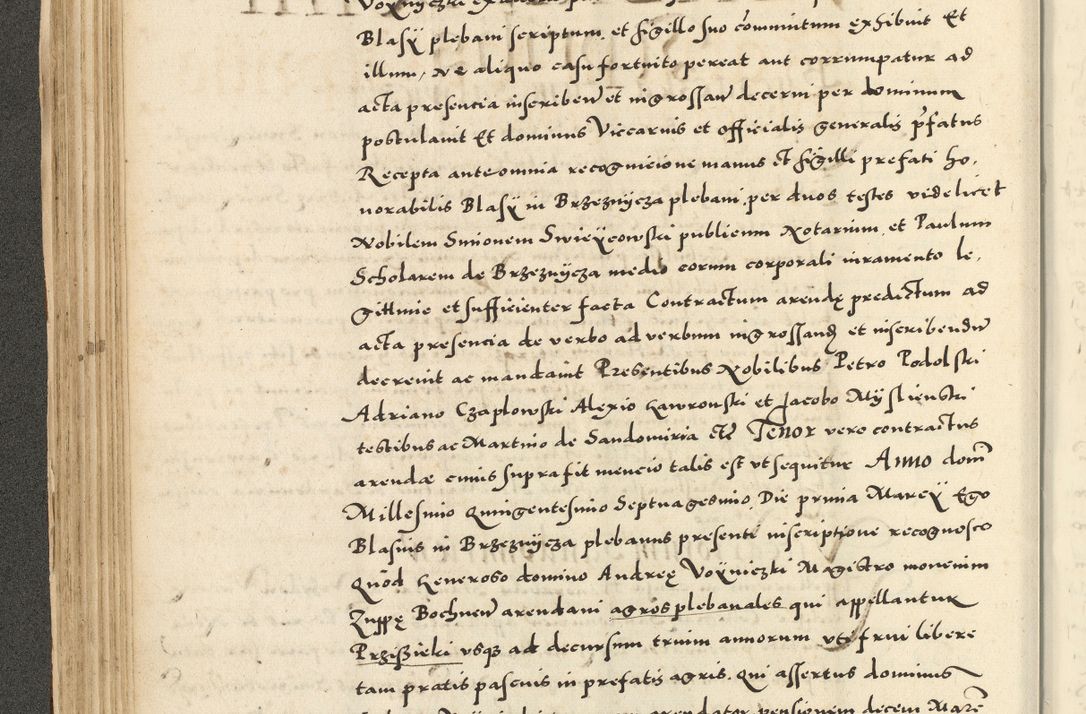 Blasÿ plebani scriptum et sigillo suo com̄unitum exhibuit Et
illum, Ne aliquo casu fortuito pereat aut corrumpatur ad
acta presencia inscribeñ et ingrossañ decerni per dominum
postulauit Et dominus Viccarius et officialis generalis p̄fatus
Recepta ante omnia recognicione manus et sigilli prefati ho,
norabilis Blasÿ in Brzeznÿcza plebani per duos testes videlicet
Nobilem Simonem Swieÿcowski publicum Notarium et Paulum
Scholarem de Brzeznÿcza medio eorum corporali iuramento le,
gittime et sufficienter facta Contractum arendę predictum ad
acta presencia de verbo ad verbum ingrossand et inscribendū
decreuit ac mandauit Presentibus Nobilibus Petro Podolski
Adriano Czaplowski Alexio Gawronski et Jacobo Mÿslienski
testibus ac Martino de Sandomiria etc̄ Tenor vero contractus
arendæ cuius supra fit mencio talis est vt sequitur Anno domī
Millesimo Quingentesimo Septuagesimo Die prima Marcÿ Ego
Blasius in Brzeznÿcza plebanus presenti inscriptione recognosco
Quod Generoso domino Andreę Voÿniczki Magistro monenim
Zuppę Bochneñ arendaui agros plebanales qui appellantur
Prziszieki vsq̃ ad decursum trium annorum vti frui libere
tam pratis pascuis in prefatis agris. Qui assertus dominus
arendator pensionem decem Marc̄